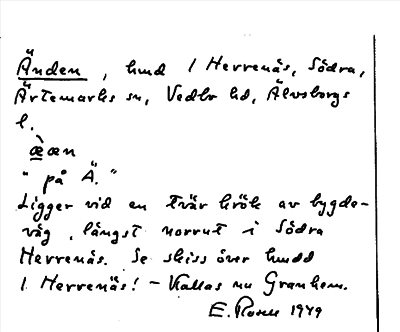 Änden, hmd 1 Herrenäs, Södra,
Ärtemarks sn, Vedbo hd, Älvsborgs
l.
æ̀æn
"på Ä."
Ligger vid en tvär krök av bygde-
väg, längst norrut i Södra
Herrenäs. Se skiss över hmdd
1 Herrenäs! – Kallas nu Granhem.
E. 1949